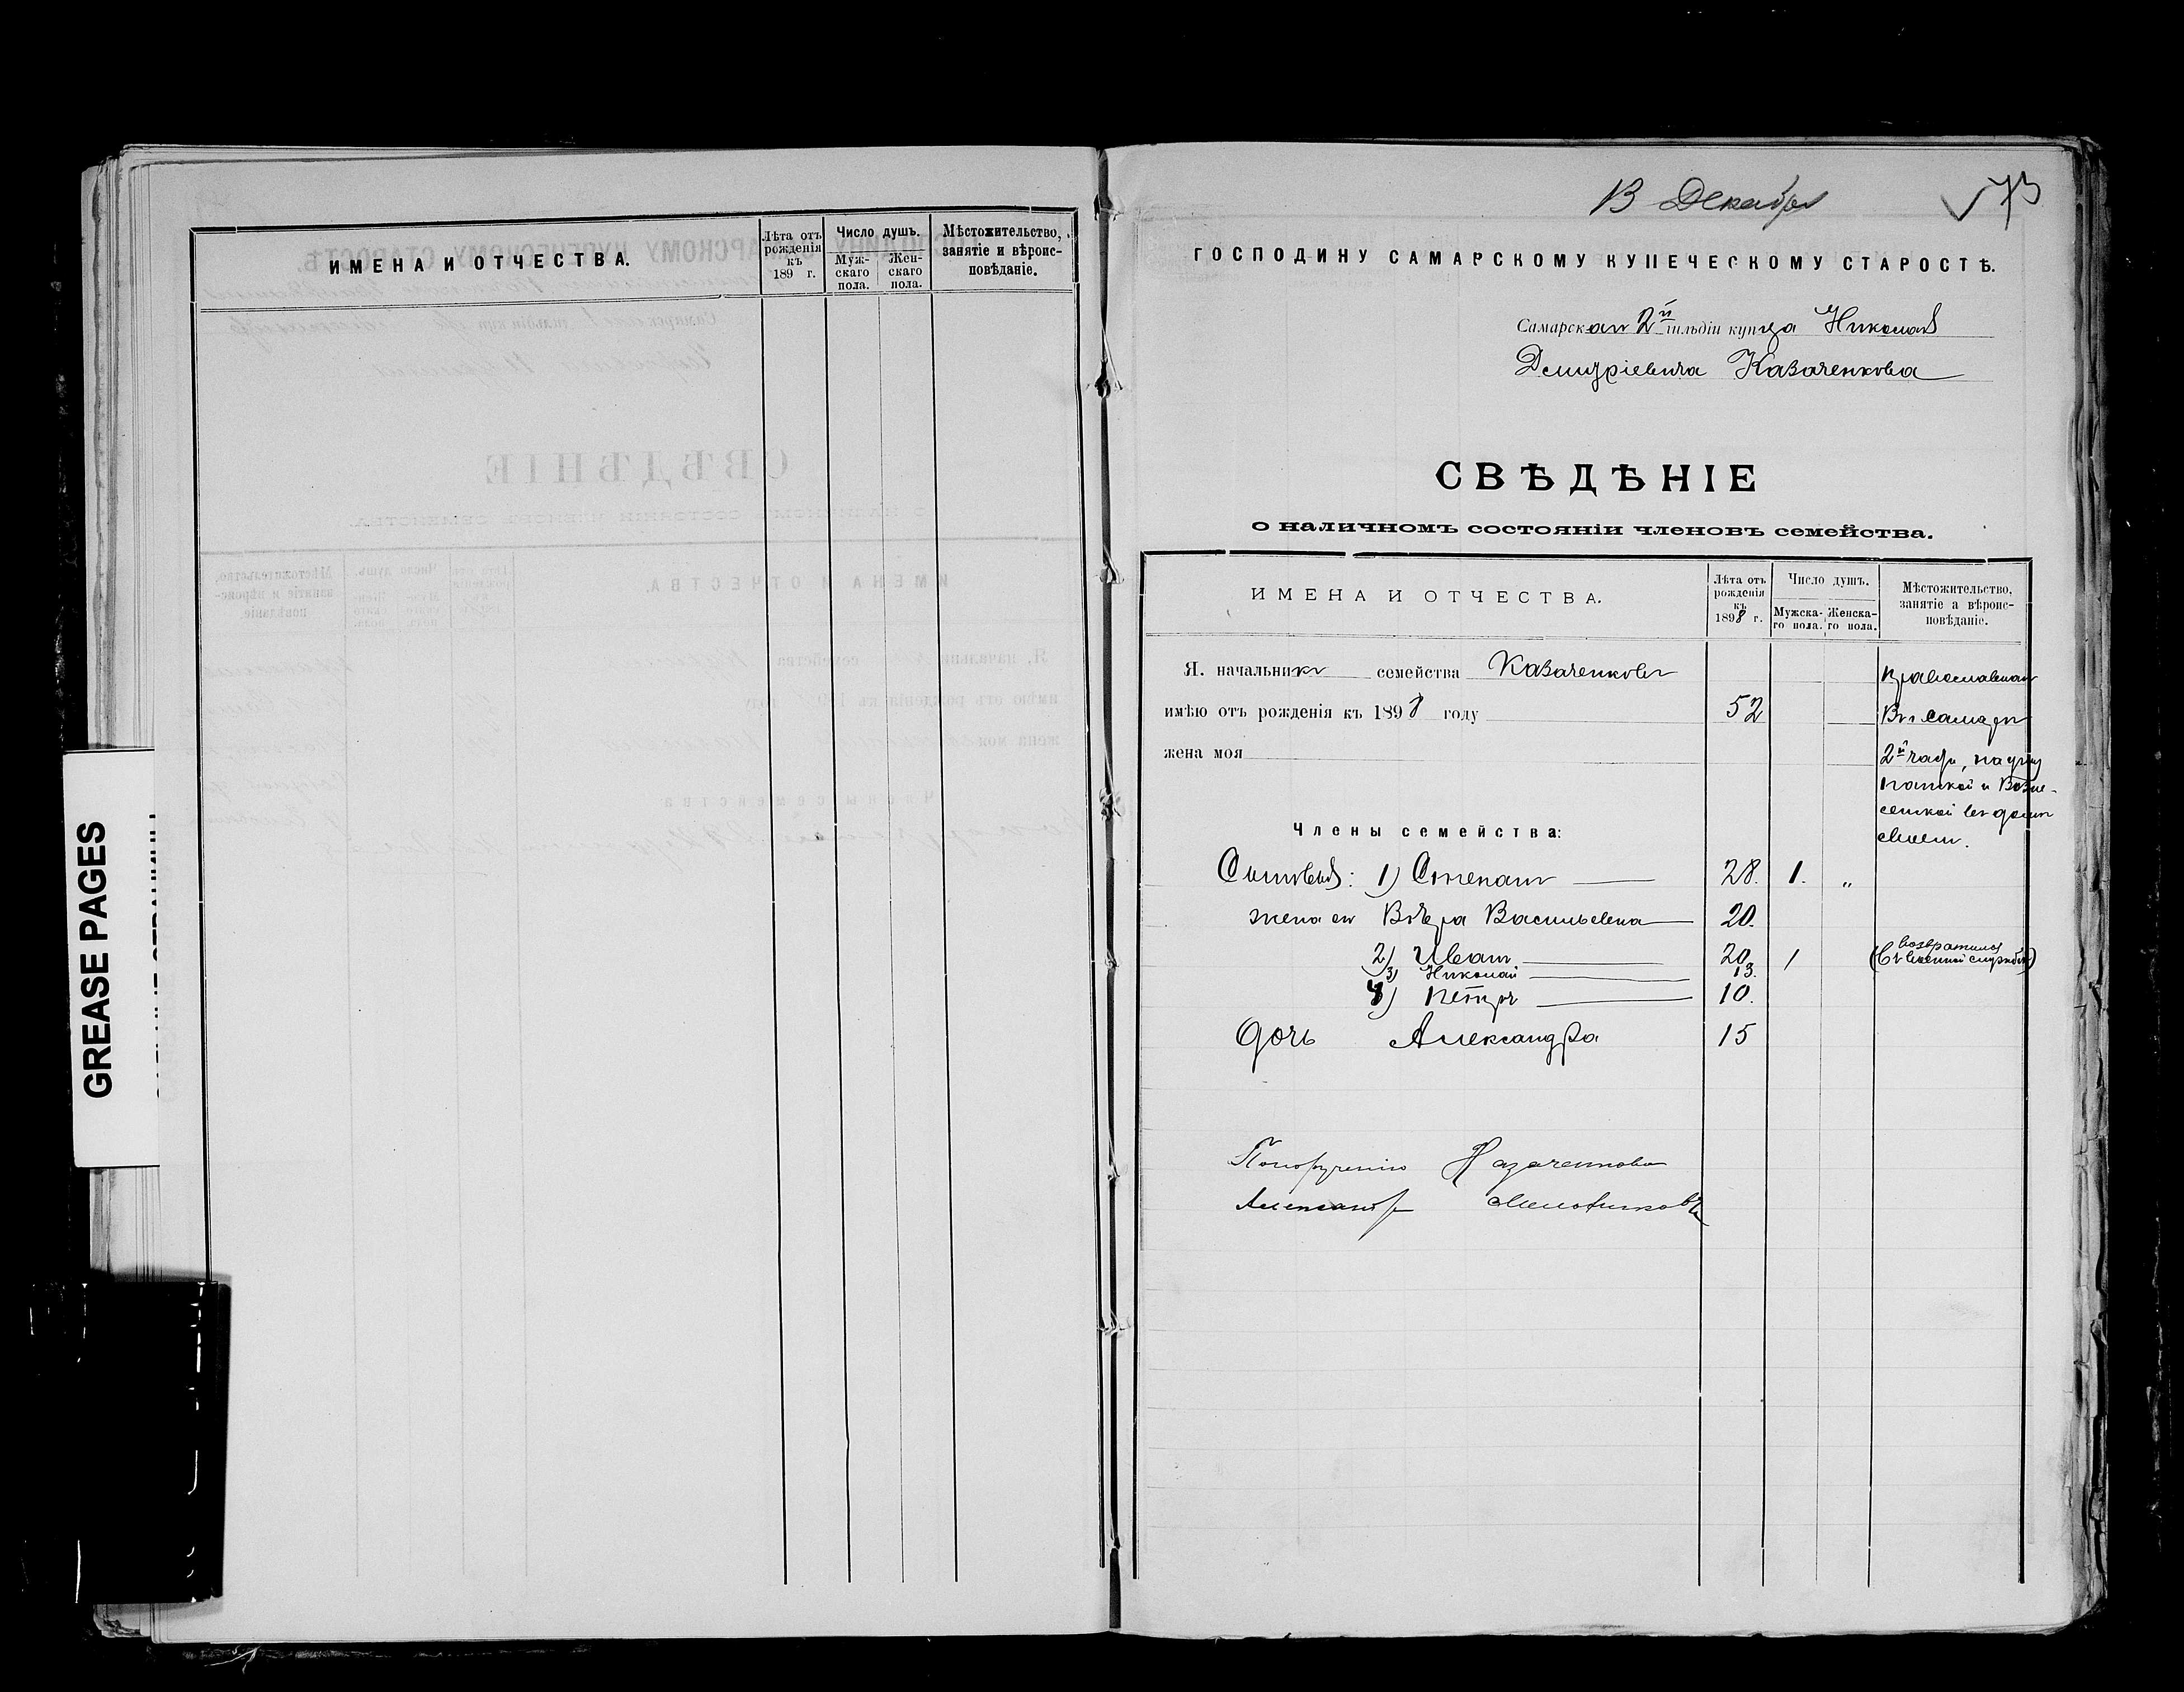 GREASE PAGES
ИМЕНА И ОТЧЕСТВА.
Лѣта отъ рожденія къ 189 г.
Число душъ.
Муж-скаго пола.
Жен-скаго пола.
Мѣстожительство, занятіе и вѣроис-повѣданіе.
13 Декабря
73
ГОСПОДИНУ САМАРСКОМУ КУПЕЧЕСКОМУ СТАРОСТѢ.
Самарскаго 2й гильдіи купца Николая
Дмитріевича Казаченкова
СВѢДѢНІЕ
о наличномъ состояніи членовъ семейства.
ИМЕНА И ОТЧЕСТВА.
Лѣта отъ рожденія къ 1898 г.
Число душъ.
Мужска-го пола.
Женска-го пола.
Мѣстожительство, занятіе а вѣроис-повѣданіе.
Я. начальникъ семейства Казаченковъ
имѣю отъ рожденія къ 1898 году 52
жена моя
Православнаго
Въ г. Самарѣ
2й части, на углу
сенской въ домѣ
своемъ.
Члены семейства:
Сыновья: 1) Степанъ 28. 1. „
жена его Вѣра Васильевна 20.
2) Иванъ 20 1 (возвратился съ военной службы)
3) Николай 13.
4) Петръ 10.
дочь Александра 15
По порученію Казаченкова
Александръ